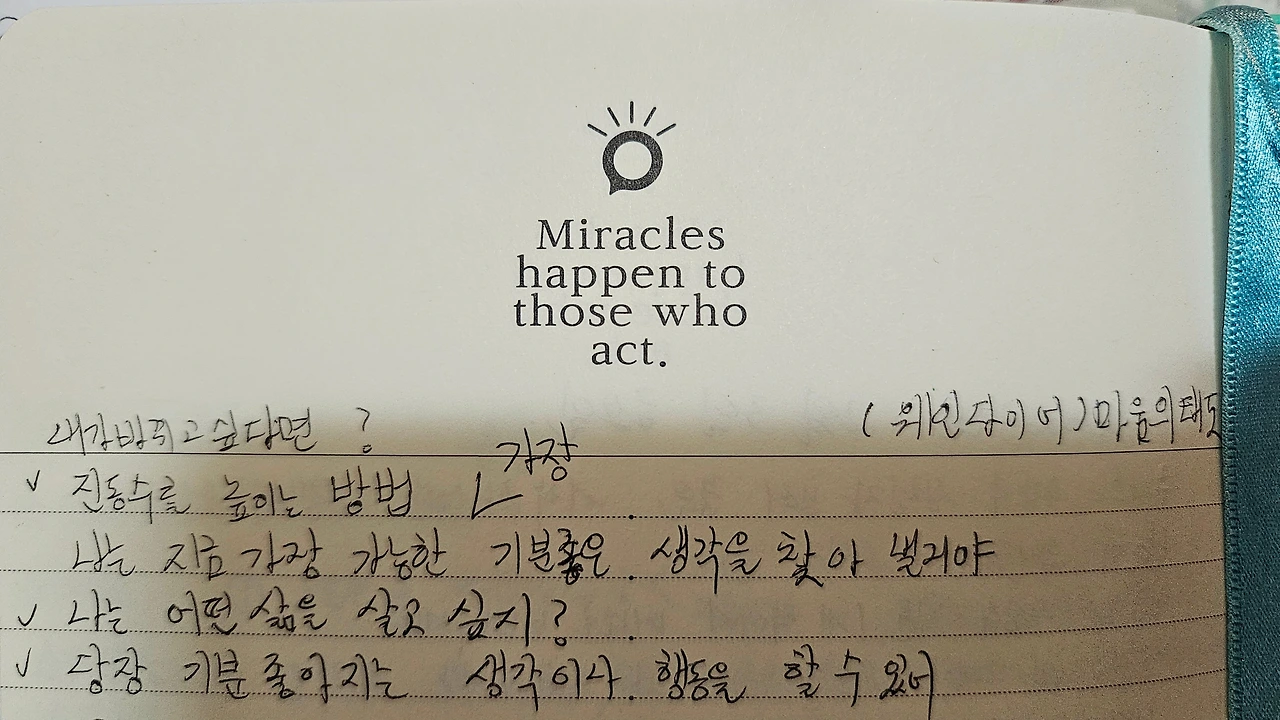 Miracles
happen to
those who
act.
싶다면 ?
(웨인다이어) 마음의태도
가장
✓ 진동수를 높이는 방법
나는 지금 가장 가능한 기분좋은 생각을 찾아 낼거야
✓ 나는 어떤 삶을 살고 싶지?
✓ 당장 기분좋아지는 생각이나 행동을 할 수 있어